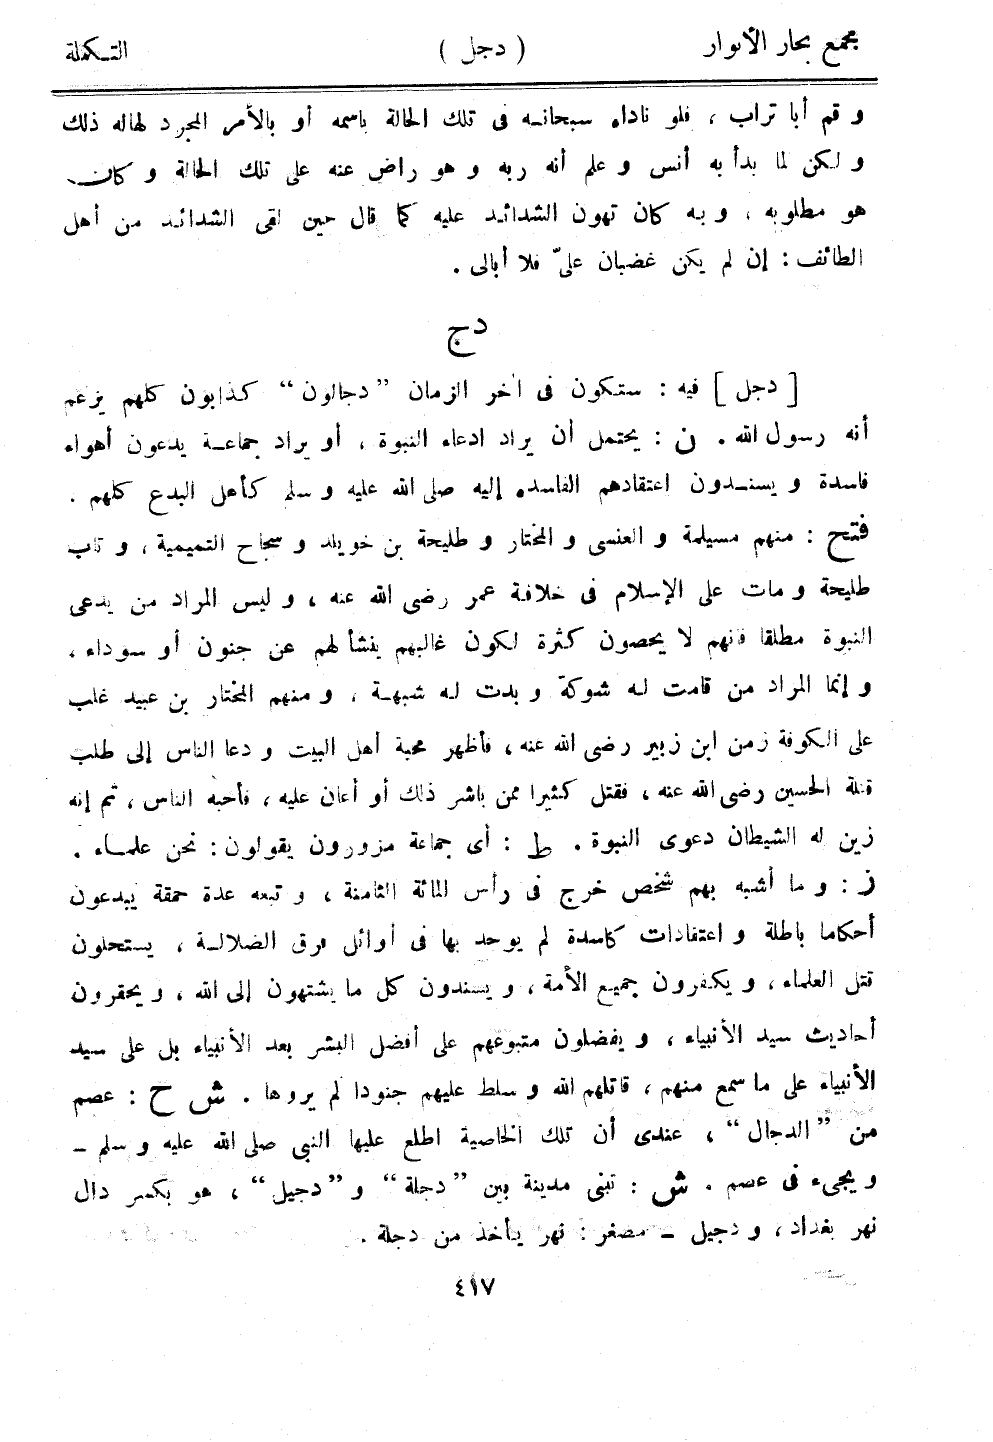 مجمع بحار الأنوار ( دجل ) التكملة
و قم أبا تراب ، فلو ناداه سبحانه فى تلك الحالة باسمه أو بالأمر المجرد لهاله ذلك
و لكن لما بدأ به أنس و علم أنه ربه و هو راض عنه على تلك الحالة و كان
هو مطلوبه ، و به كان تهون الشدائد عليه كما قال حين لقى الشدائد من أهل
الطائف : إن لم يكن غضبان علىّ فلا أبالى .
دج
[ دجل ] فيه : ستكون فى آخر الزمان ”دجالون“ كذابون كلهم يزعم
أنه رسول الله . ن : يحتمل أن يراد ادعاء النبوة ، أو يراد جماعة يدعون أهواء
فاسدة و يسندون اعتقادهم الفاسد إليه صلى الله عليه و سلم كأهل البدع كلهم .
فتح : منهم مسيلمة و العنسى و المختار و طليحة بن خويلد و سجاح التميمية ، و تاب
طليحة و مات على الإسلام فى خلافة عمر رضى الله عنه ، و ليس المراد من يدعى
النبوة مطلقا فانهم لا يحصون كثرة لكون غالبهم ينشأ لهم عن جنون أو سوداء ،
و إنما المراد من قامت له شوكة و بدت له شبهة ، و منهم المختار بن عبيد غلب
على الكوفة زمن ابن زبير رضى الله عنه ، فأظهر محبة أهل البيت و دعا الناس إلى طلب
قتلة الحسين رضى الله عنه ، فقتل كثيرا ممن باشر ذلك أو أعان عليه ، فأحبه الناس ، ثم إنه
زين له الشيطان دعوى النبوة . ط : أى جماعة مزورون يقولون : نحن علماء .
ز : و ما أشبه بهم شخص خرج فى رأس المائة الثامنة ، و تبعه عدة حمقة يبدعون
أحكاما باطلة و اعتقادات كاسدة لم يوجد بها فى أوائل فرق الضلالة ، يستحلون
قتل العلماء ، و يكفرون جميع الأمة ، و يسندون كل ما يشتهون إلى الله ، و يحقرون
أحاديث سيد الأنبياء ، و يفضلون متبوعهم على أفضل البشر بعد الأنبياء بل على سيد
الأنبياء على ما سمع منهم ، قاتلهم الله و سلط عليهم جنودا لم يروها . ش ح : عصم
من ”الدجال“ ، عندى أن تلك الخاصية اطلع عليها النبى صلى الله عليه و سلم -
و يجىء فى عصم . ش : تبنى مدينة بين ”دجلة“ و ”دجيل“ ، هو بكسر دال
نهر بغداد ، و دجيل - مصغر : نهر يأخذ من دجلة .
٤١٧